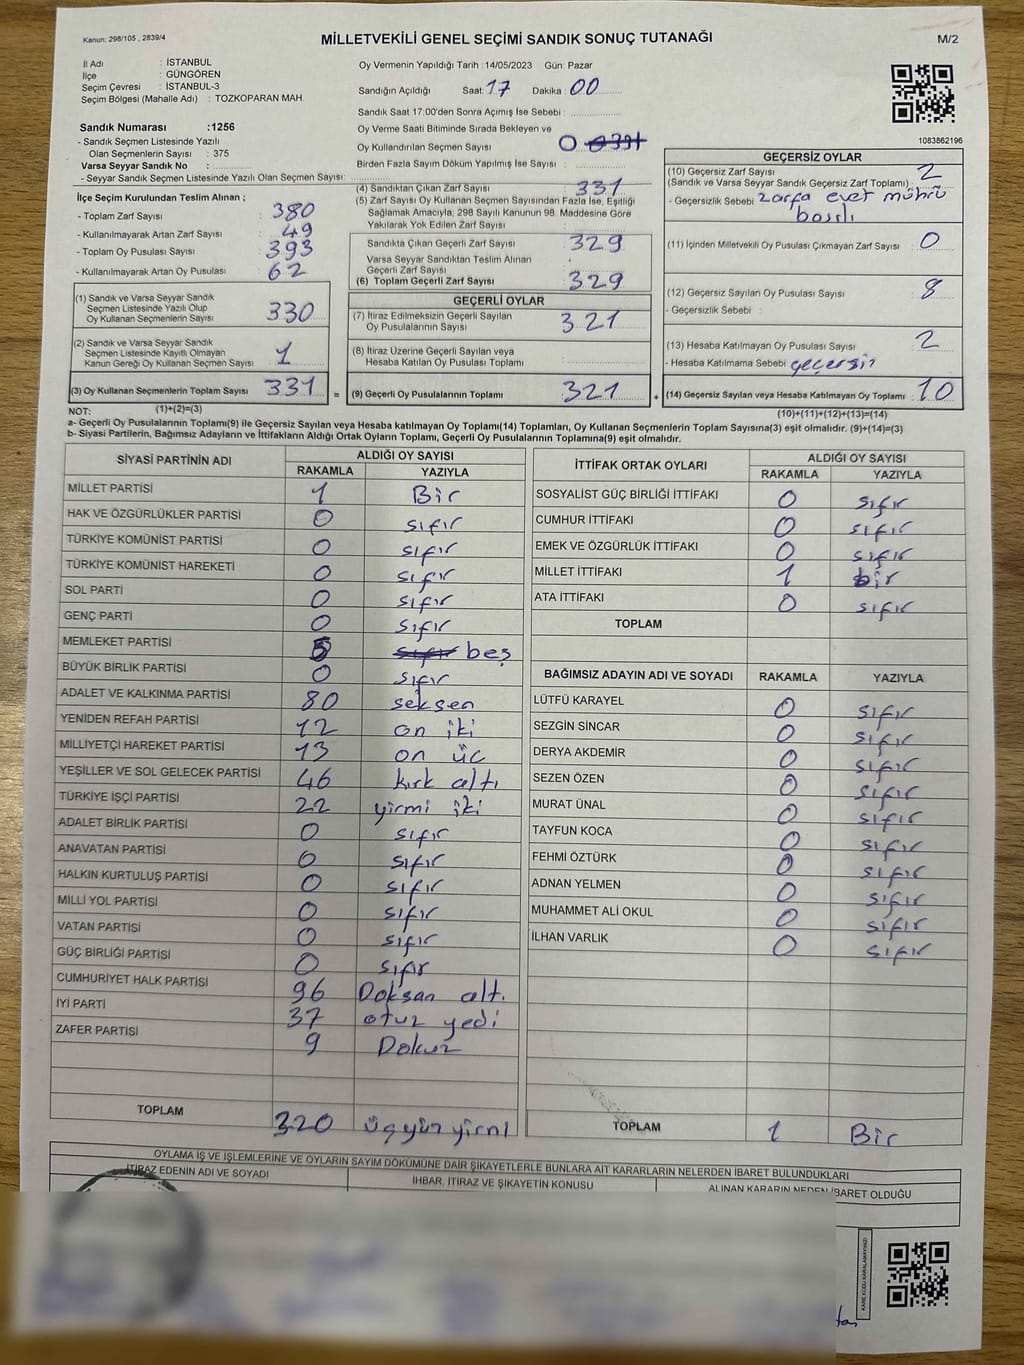 Kanun: 298/105 , 2839/4
MİLLETVEKİLİ GENEL SEÇİMİ SANDIK SONUÇ TUTANAĞI
M/2
İl Adı : İSTANBUL
İlçe : GÜNGÖREN
Seçim Çevresi : İSTANBUL-3
Seçim Bölgesi (Mahalle Adı) : TOZKOPARAN MAH.
Sandık Numarası :1256
- Sandık Seçmen Listesinde Yazılı
Olan Seçmenlerin Sayısı : 375
Varsa Seyyar Sandık No :
- Seyyar Sandık Seçmen Listesinde Yazılı Olan Seçmen Sayısı:
Oy Vermenin Yapıldığı Tarih :14/05/2023 Gün: Pazar
Sandığın Açıldığı Saat: 17 Dakika 00
Sandık Saat 17:00'den Sonra Açımış İse Sebebi :
Oy Verme Saati Bitiminde Sırada Bekleyen ve
Oy Kullandırılan Seçmen Sayısı 0
Birden Fazla Sayım Döküm Yapılmış İse Sayısı :
1083862196
İlçe Seçim Kurulundan Teslim Alınan ;
- Toplam Zarf Sayısı : 380
- Kullanılmayarak Artan Zarf Sayısı : 49
- Toplam Oy Pusulası Sayısı : 393
- Kullanılmayarak Artan Oy Pusulası : 62
(1) Sandık ve Varsa Seyyar Sandık
Seçmen Listesinde Yazılı Olup
Oy Kullanan Seçmenlerin Sayısı : 330
(2) Sandık ve Varsa Seyyar Sandık
Seçmen Listesinde Kayıtlı Olmayan
Kanun Gereği Oy Kullanan Seçmen Sayısı : 1
(3) Oy Kullanan Seçmenlerin Toplam Sayısı : 331 =
(1)+(2)=(3)
(4) Sandıktan Çıkan Zarf Sayısı : 331
(5) Zarf Sayısı Oy Kullanan Seçmen Sayısından Fazla İse, Eşitliği
Sağlamak Amacıyla, 298 Sayılı Kanunun 98. Maddesine Göre
Yakılarak Yok Edilen Zarf Sayısı :
Sandıkta Çıkan Geçerli Zarf Sayısı : 329
Varsa Seyyar Sandıktan Teslim Alınan
Geçerli Zarf Sayısı :
(6) Toplam Geçerli Zarf Sayısı : 329
GEÇERLİ OYLAR
(7) İtiraz Edilmeksizin Geçerli Sayılan
Oy Pusulalarının Sayısı : 321
(8) İtiraz Üzerine Geçerli Sayılan veya
Hesaba Katılan Oy Pusulası Toplamı :
(9) Geçerli Oy Pusulalarının Toplamı : 321 +
GEÇERSİZ OYLAR
(10) Geçersiz Zarf Sayısı
(Sandık ve Varsa Seyyar Sandık Geçersiz Zarf Toplamı) : 2
- Geçersizlik Sebebi : zarfa evet mührü
basılı
(11) İçinden Milletvekili Oy Pusulası Çıkmayan Zarf Sayısı : 0
(12) Geçersiz Sayılan Oy Pusulası Sayısı : 8
- Geçersizlik Sebebi :
(13) Hesaba Katılmayan Oy Pusulası Sayısı : 2
- Hesaba Katılmama Sebebi : geçersiz
(14) Geçersiz Sayılan veya Hesaba Katılmayan Oy Toplamı : 10
(10)+(11)+(12)+(13)=(14)
NOT:
a- Geçerli Oy Pusulalarının Toplamı(9) ile Geçersiz Sayılan veya Hesaba katılmayan Oy Toplamı(14) Toplamları, Oy Kullanan Seçmenlerin Toplam Sayısına(3) eşit olmalıdır. (9)+(14)=(3)
b- Siyasi Partilerin, Bağımsız Adayların ve İttifakların Aldığı Ortak Oyların Toplamı, Geçerli Oy Pusulalarının Toplamına(9) eşit olmalıdır.
SİYASİ PARTİNİN ADI ALDIĞI OY SAYISI
RAKAMLA YAZIYLA
MİLLET PARTİSİ 1 Bir
HAK VE ÖZGÜRLÜKLER PARTİSİ 0 sıfır
TÜRKİYE KOMÜNİST PARTİSİ 0 sıfır
TÜRKİYE KOMÜNİST HAREKETİ 0 sıfır
SOL PARTİ 0 sıfır
GENÇ PARTİ 0 sıfır
MEMLEKET PARTİSİ 5 sıfır beş
BÜYÜK BİRLİK PARTİSİ 0 sıfır
ADALET VE KALKINMA PARTİSİ 80 seksen
YENİDEN REFAH PARTİSİ 12 on iki
MİLLİYETÇİ HAREKET PARTİSİ 13 on üç
YEŞİLLER VE SOL GELECEK PARTİSİ 46 kırk altı
TÜRKİYE İŞÇİ PARTİSİ 22 yirmi iki
ADALET BİRLİK PARTİSİ 0 sıfır
ANAVATAN PARTİSİ 0 sıfır
HALKIN KURTULUŞ PARTİSİ 0 sıfır
MİLLİ YOL PARTİSİ 0 sıfır
VATAN PARTİSİ 0 sıfır
GÜÇ BİRLİĞİ PARTİSİ 0 sıfır
CUMHURİYET HALK PARTİSİ 96 Doksan altı
İYİ PARTİ 37 otuz yedi
ZAFER PARTİSİ 9 Dokuz
TOPLAM 320 üçyüzyirmi
İTTİFAK ORTAK OYLARI ALDIĞI OY SAYISI
RAKAMLA YAZIYLA
SOSYALİST GÜÇ BİRLİĞİ İTTİFAKI 0 sıfır
CUMHUR İTTİFAKI 0 sıfır
EMEK VE ÖZGÜRLÜK İTTİFAKI 0 sıfır
MİLLET İTTİFAKI 1 bir
ATA İTTİFAKI 0 sıfır
TOPLAM
BAĞIMSIZ ADAYIN ADI VE SOYADI RAKAMLA YAZIYLA
LÜTFÜ KARAYEL 0 sıfır
SEZGİN SİNCAR 0 sıfır
DERYA AKDEMİR 0 sıfır
SEZEN ÖZEN 0 sıfır
MURAT ÜNAL 0 sıfır
TAYFUN KOCA 0 sıfır
FEHMİ ÖZTÜRK 0 sıfır
ADNAN YELMEN 0 sıfır
MUHAMMET ALİ OKUL 0 sıfır
İLHAN VARLIK 0 sıfır
TOPLAM 1 Bir
OYLAMA İŞ VE İŞLEMLERİNE VE OYLARIN SAYIM DÖKÜMÜNE DAİR ŞİKAYETLERLE BUNLARA AİT KARARLARIN NELERDEN İBARET BULUNDUKLARI
İTİRAZ EDENİN ADI VE SOYADI
İHBAR, İTİRAZ VE ŞİKAYETİN KONUSU
ALINAN KARARIN NEDEN İBARET OLDUĞU
KARE KODU KARALAMAYINIZ!